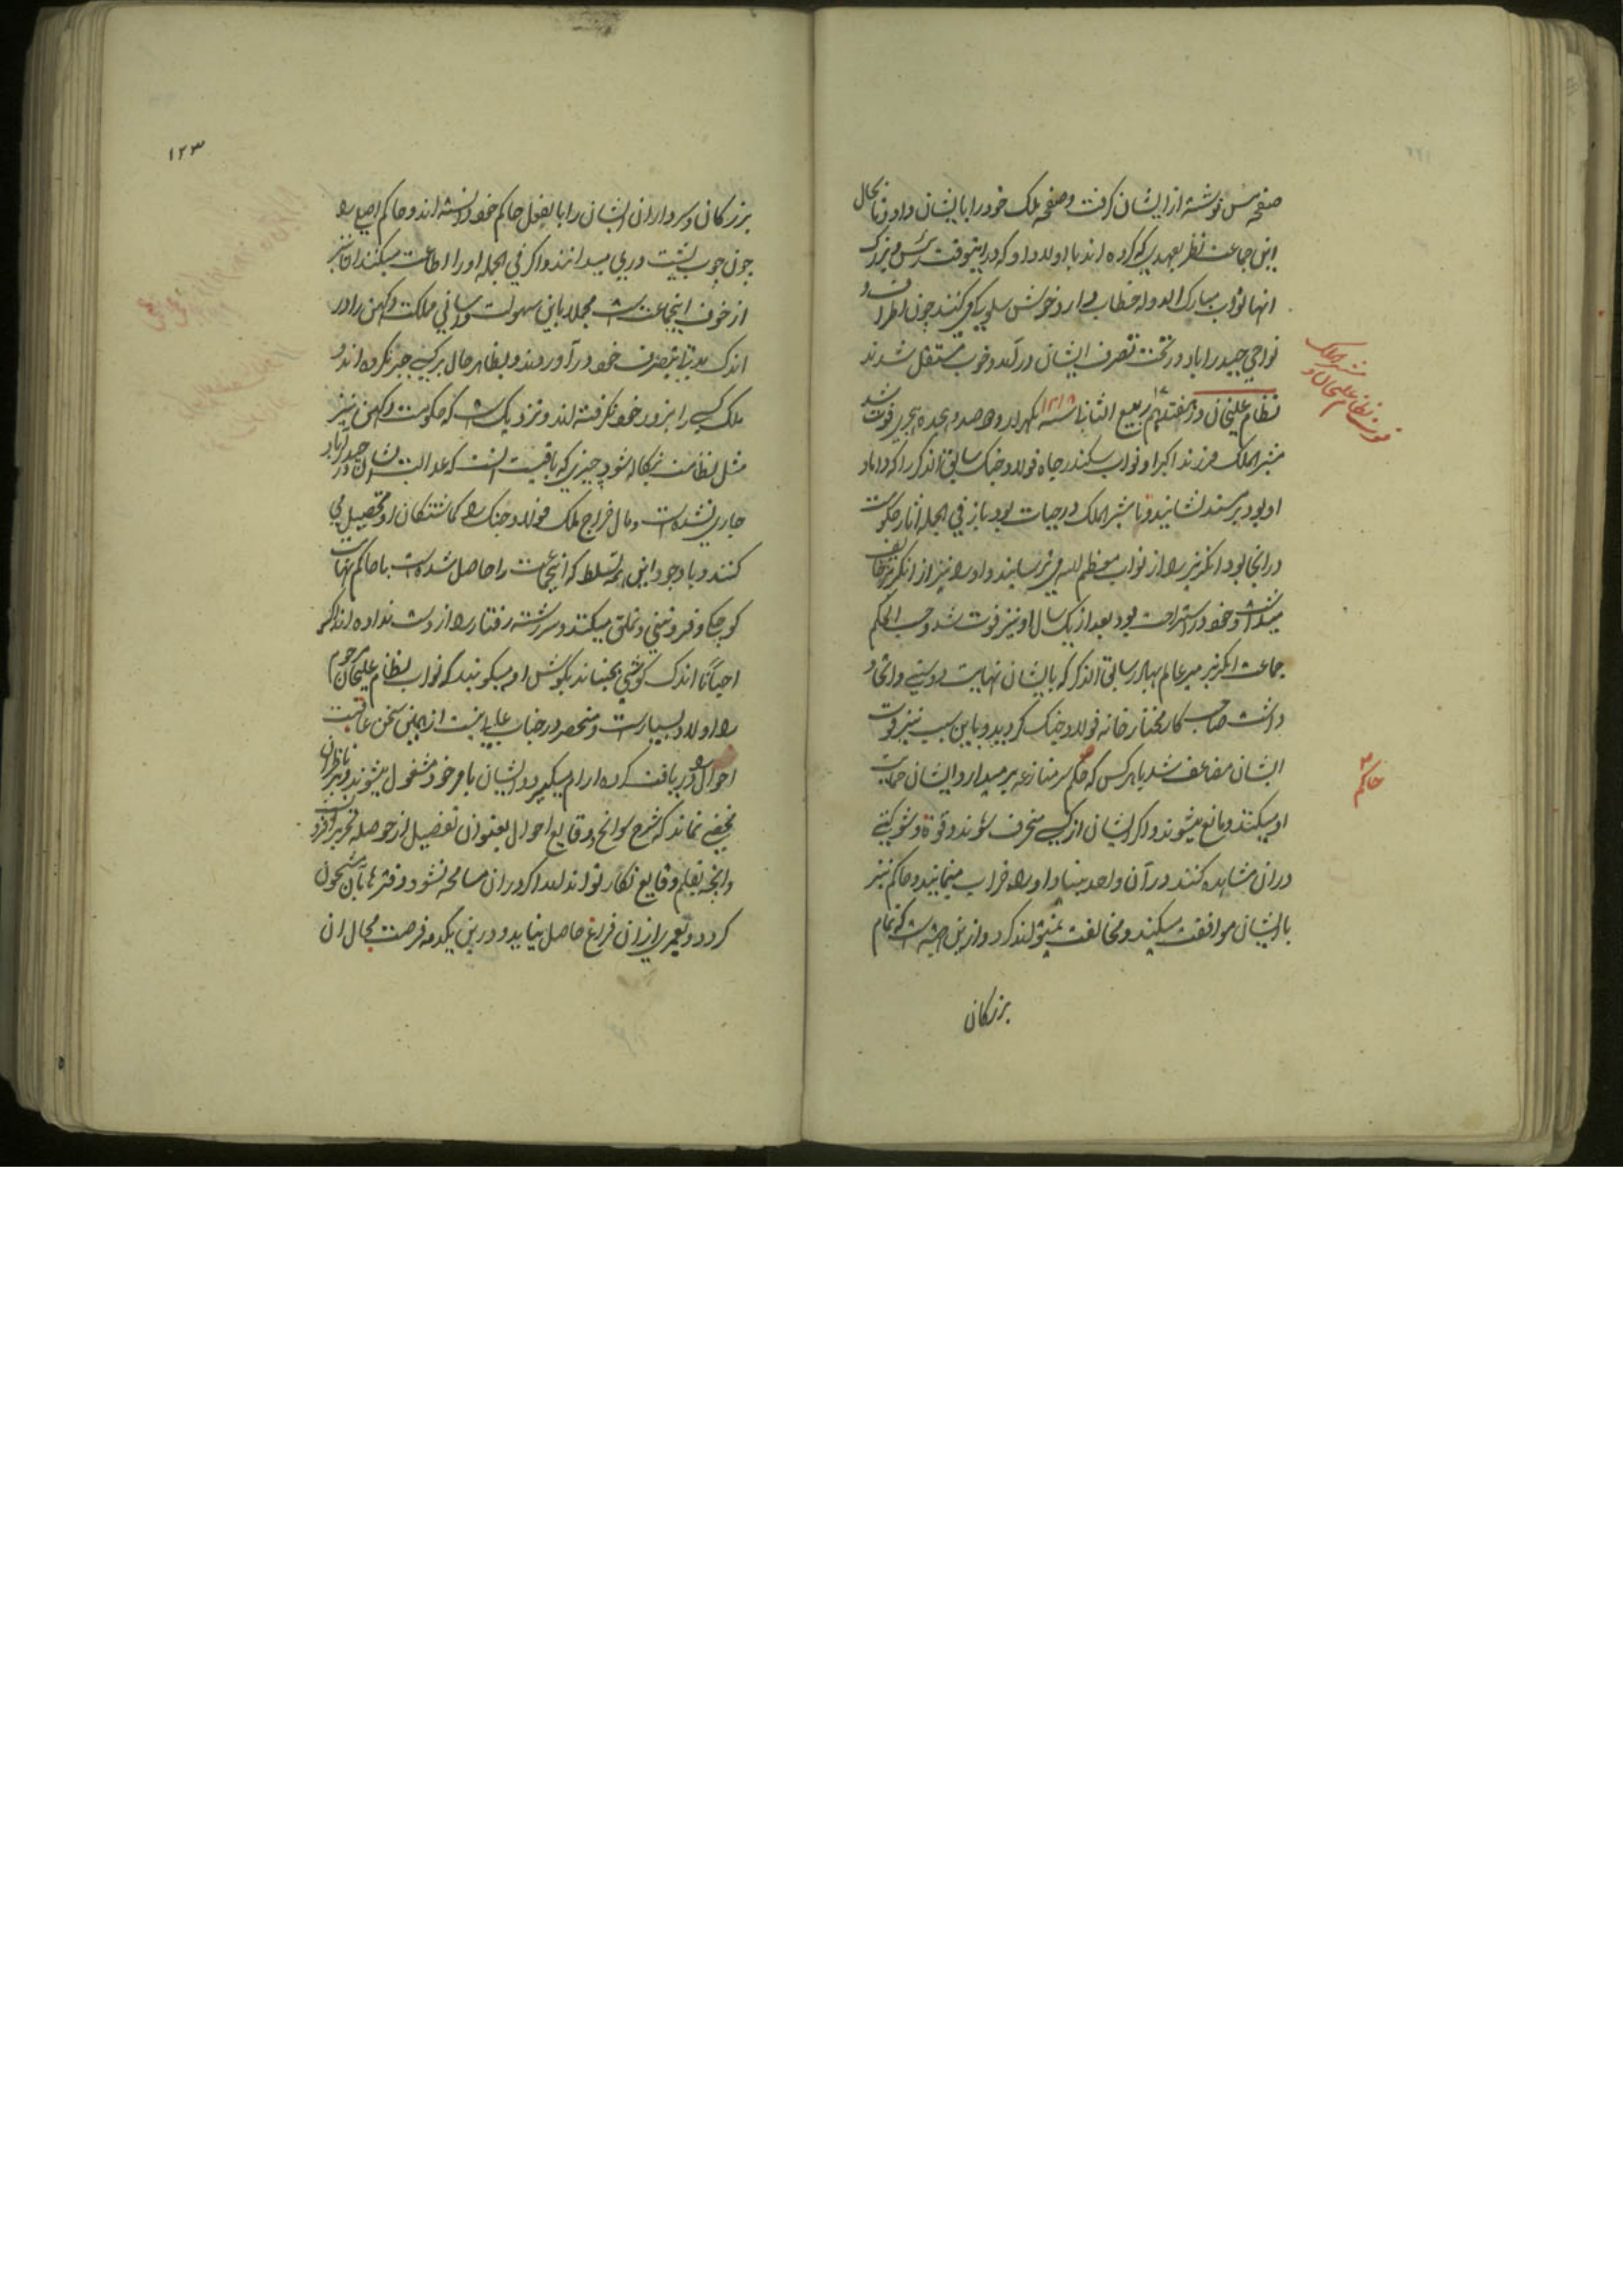 صفحه مس نوشته از ایشان گرفت و صفحه ملک خود را بایشان داد و تا بحال
این جماعت نظر بعهدی که کرده اند با اولاد او که در اینوقت رئیس و بزرگ
انها نواب مبارک الدوله خطاب دارد خوش سلوکی می کنند چون اطراف و
نواحی حیدراباد در تحت تصرف ایشان در آمد و خوب مستقل شدند
نظام علیخان در هفتدهم ۱۷ ربیع الثانی سنه ۱۲۱۸ یکهزار و دو صد و هجده هجری فوت شد
مشیر الملک فرزند اکبر او نواب سکندر جاه فولاد جنک سابق الذکر را که داماد
او بود بر مسند نشانید و تا مشیر الملک در حیات بود باز فی الجمله اثار حکومت
در انجا بود انکریز را از نواب معظم الیه می ترسانید و او را نیز از انکریز خائف
میداشت و خود در استراحت بود بعد از یک سال او نیز فوت شد و حسب الحکم
جماعت انکریز میر عالم بهادر سابق الذکر که بایشان نهایت دوستی و اتحاد
داشت صاحب کار مختار خانه فولاد جنک گردید و باین سبب نیز قوت
ایشان مضاعف شد با هر کس که حاکم سر منازعه بر میدارد ایشان حمایت
او میکنند و مانع میشوند و اگر ایشان از کسی منحرف شوند و قوة و شوکتی
در ان مشاهده کنند در آن واحد بنیاد او را خراب مینمایند و حاکم نیز
با ایشان موافقت میکند و مخالفت نمیتواند کرد و ازین جهت است که تمام
بزرکان
مشیر الملک
نظام علیخان و
فوت
حاکم
۱۲۳
بزرکان و سرداران ایشان را بالفعل حاکم خود دانسته اند و حاکم اصلی را
چون چوب پشت دری میدانند و اگر فی الجمله او را اطاعت میکنند ان نیز
از خوف اینجماعت است مجملا باین سهولت و اسانی مملکت دکهن را در
اندک مدتی بتصرف خود در آوردند و بظاهر حال بر کسی جبر نکرده اند و
ملک کسی را بزور خود نگرفته اند و نزدیک است که حکومت دکهن نیز
مثل نظامت بنگاله شود چیزی که باقیست انست که عدالت ایشان در حیدراباد
جاری نشده است و مال خراج ملک فولاد جنک را گماشتگان او تحصیل می
کنند و با وجود این همه تسلط که اینجماعت را حاصل شده است با حاکم نهایت
کوچکی و فروتنی و تملق میکنند و سررشته رفتار را از دست نداده اند اگر
احیانا اندک گوشی بجنباند بگوش او میگویند که نواب نظام علیخان مرحوم
را اولاد بسیار است و منحصر در جناب عالی نیست از همین سخن عاقبت
احوال را در یافت کرده ارام میگیرد و ایشان بامر خود مشغول میشوند و بر ناظران
مخفی نماند که شرح سوانح و وقایع احوال بعنوان تفصیل از حوصله تحریر افزون است
وانچه بقلم وقایع نگار تواند امد اگر در ان مسامحه نشود دفترها بان مشحون
گردد و بعمری از ان فراغ حاصل نیاید و درین یکدمه فرصت مجال ان